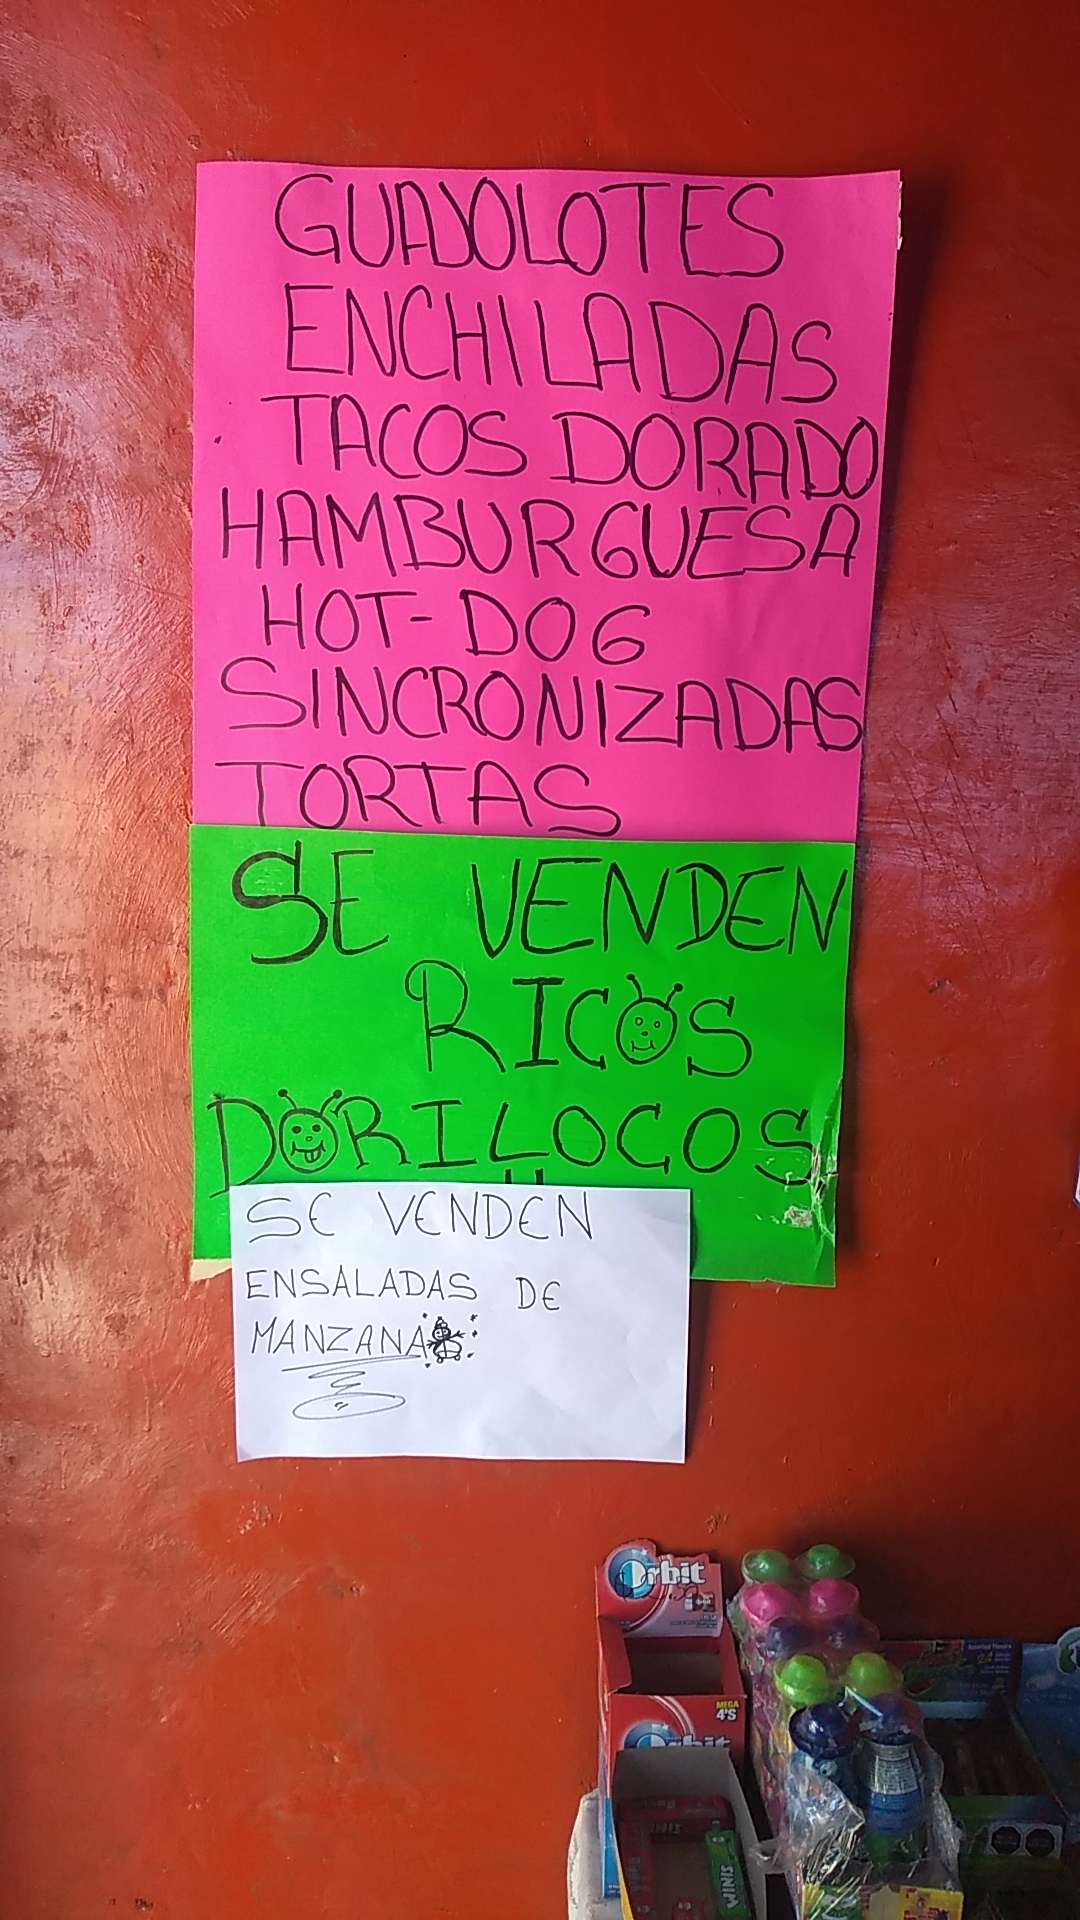 GUAJOLOTES
ENCHILADAS
TACOS DORADO
HAMBURGUESA
HOT-DOG
SINCRONIZADAS
TORTAS
SE VENDEN
RICOS
DORILOCOS
SE VENDEN
ENSALADAS DE
MANZANA
Orbit
MEGA
4'S
Orbit
WINIS